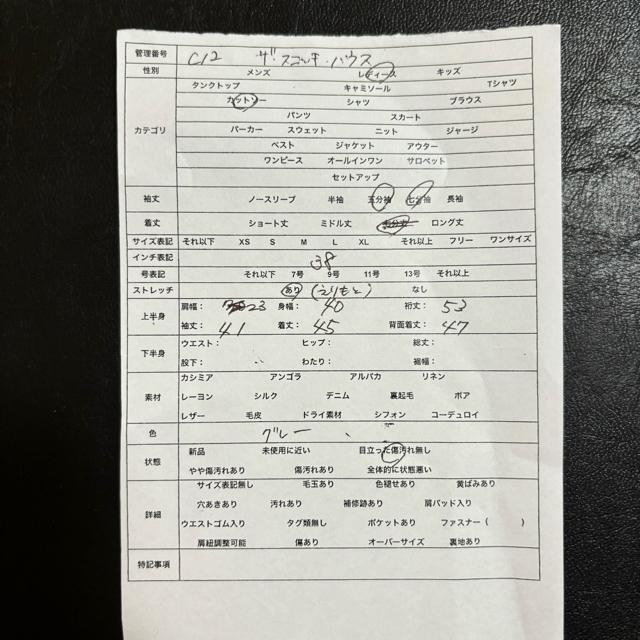 管理番号 C12 ザ・スコッチ・ハウス
性別 メンズ レディース キッズ
タンクトップ キャミソール Tシャツ
カットソー シャツ ブラウス
パンツ スカート
カテゴリ パーカー スウェット ニット ジャージ
ベスト ジャケット アウター
ワンピース オールインワン サロペット
セットアップ
袖丈 ノースリーブ 半袖 五分袖 七分袖 長袖
着丈 ショート丈 ミドル丈 ロング丈
サイズ表記 それ以下 XS S M L XL それ以上 フリー ワンサイズ
インチ表記 38
号表記 それ以下 7号 9号 11号 13号 それ以上
ストレッチ あり (えりもと) なし
上半身 肩幅: 23 身幅: 40 裄丈: 53
袖丈: 41 着丈: 45 背面着丈: 47
下半身 ウエスト: ヒップ: 総丈:
股下: わたり: 裾幅:
カシミア アンゴラ アルパカ リネン
素材 レーヨン シルク デニム 裏起毛 ボア
レザー 毛皮 ドライ素材 シフォン コーデュロイ
色 グレー
状態 新品 未使用に近い 目立った傷汚れ無し
やや傷汚れあり 傷汚れあり 全体的に状態悪い
サイズ表記無し 毛玉あり 色褪せあり 黄ばみあり
穴あきあり 汚れあり 補修跡あり 肩パッド入り
詳細 ウエストゴム入り タグ類無し ポケットあり ファスナー( )
肩紐調整可能 傷あり オーバーサイズ 裏地あり
特記事項